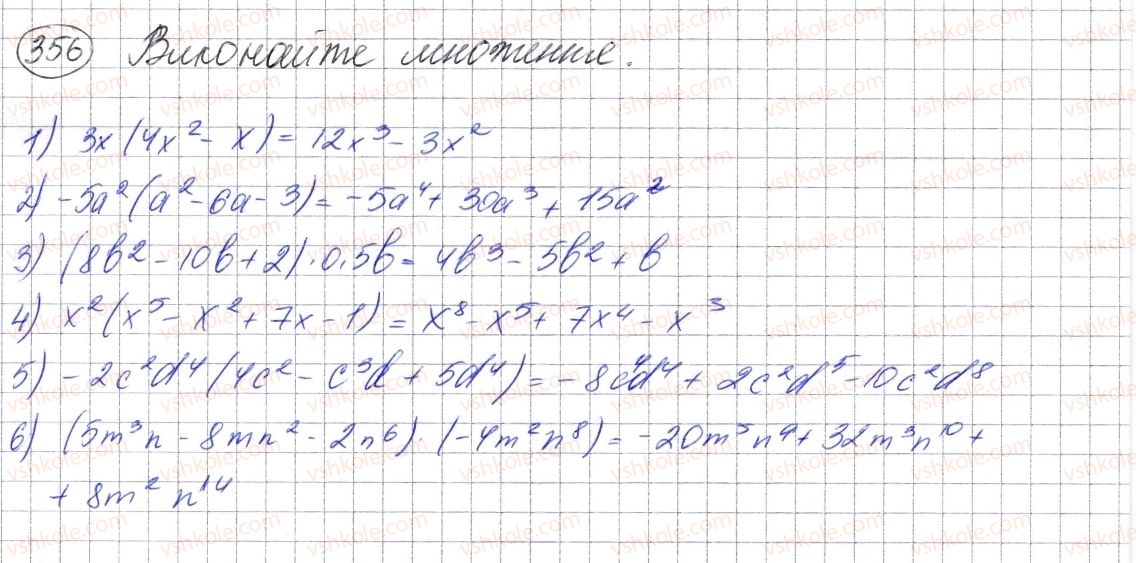 356 Виконайте множення.
1) 3x(4x² - x) = 12x³ - 3x²
2) -5a²(a² - 6a - 3) = -5a⁴ + 30a³ + 15a²
3) (8b² - 10b + 2) · 0,5b = 4b³ - 5b² + b
4) x²(x⁵ - x² + 7x - 1) = x⁸ - x⁵ + 7x⁴ - x³
5) -2c²d⁴(4c² - c³d + 5d⁴) = -8c⁴d⁴ + 2c²d⁵ - 10c²d⁸
6) (5m³n - 8mn² - 2n⁶) · (-4m²n⁸) = -20m⁵n⁹ + 32m³n¹⁰ +
+ 8m² n¹⁴